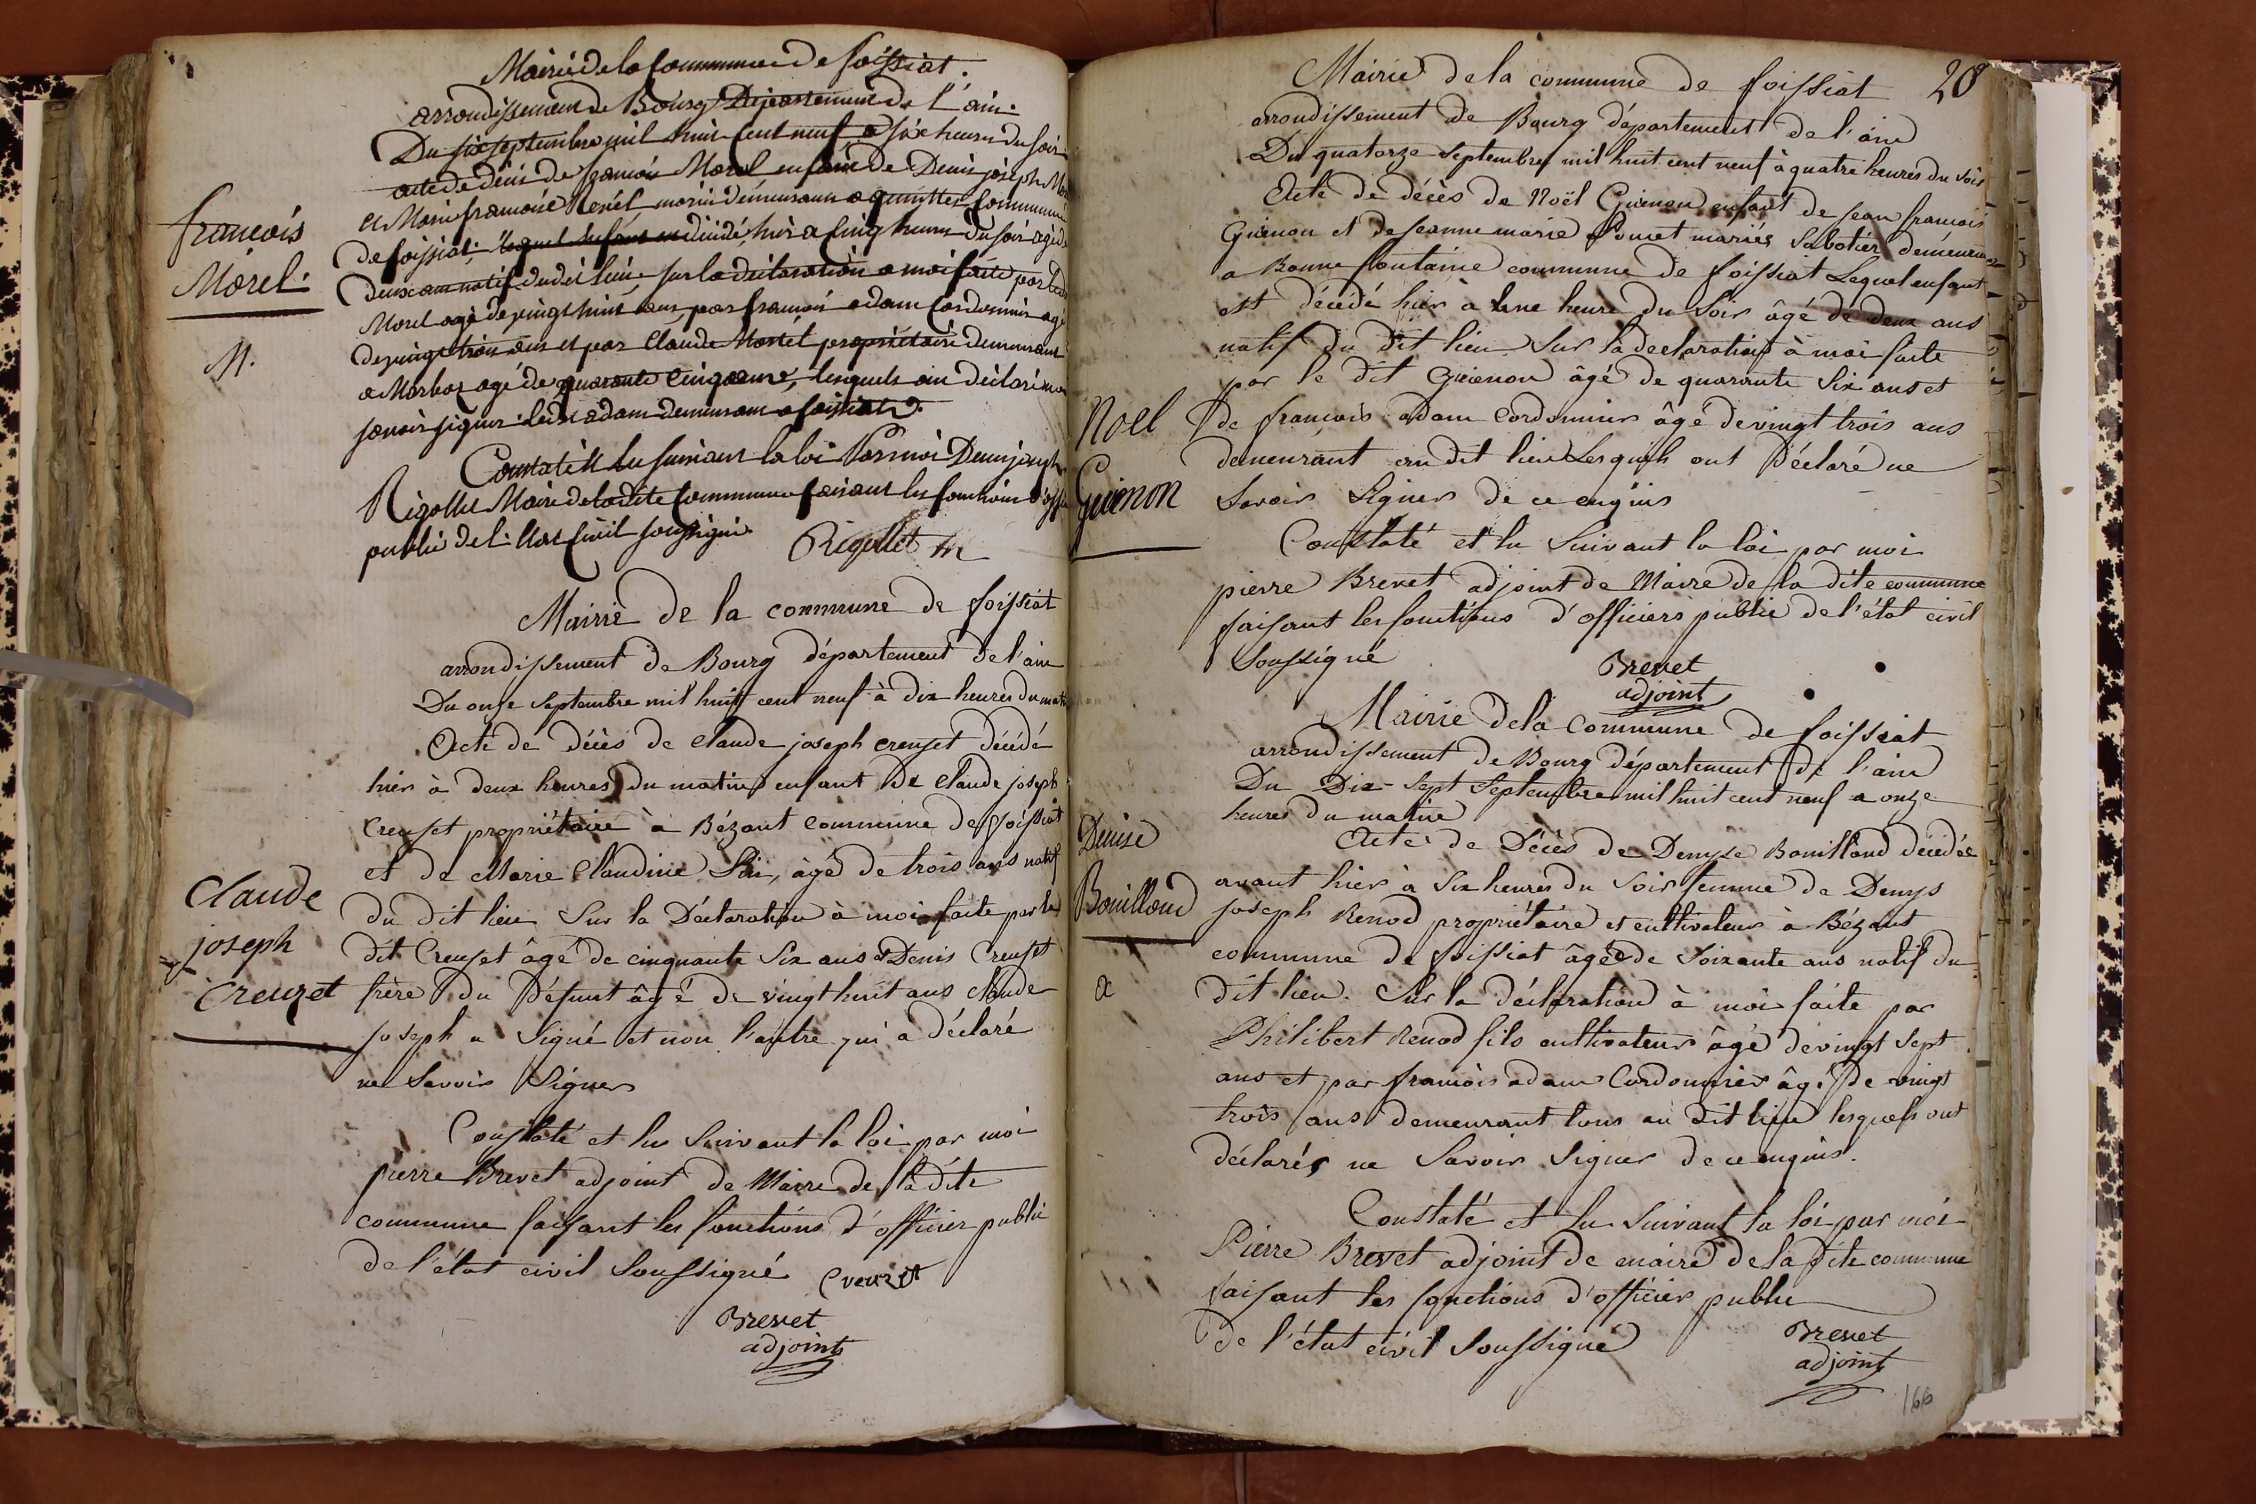 Mairie de la Commune de foissiat.
arrondissement de Bourg Département de L'ain.
Du six septembre mil huit Cent neuf a six heures du soir
acte de décès de françois Morel enfant de Denis joseph
et Marie françoise mariés demeurant a Commune
de foissiat lequel enfant est décédé hier a Cinq heures du soir agé de
Deux ans natif dudit lieu sur la déclaration a moi faite par ledit
Morel agé de vingt huit ans, par françois adam Cordonnier agé
de vingt trois ans et par Claude propriétaire demeurant
a Marboz agé de quarante Cinq ans, lesquels ont déclaré ne
savoir signer ledit adam demeurant a foissiat.
Constaté et lu suivant la loi Par moi Denis joseph
Rigollet Maire de ladite Commune faisant les fonctions d'
public de l'Etat Civil soussigné.
Rigollet m
françois
Morel
M.
Mairie de la commune de foissiat
arrondissement de Bourg département de l'ain
Du onze septembre mil huit cent neuf à dix heures du
Acte de décès de Claude joseph creuzet décédé
hier à deux heures du matin enfant de Claude joseph
Creuzet propriétaire à Bézant commune de foissiat
et de Marie Claudine âgé de trois ans natif
du dit lieu Sur la Déclaration à moi faite par le
dit Creuzet âgé de cinquante Six ans et Denis Creuzet
frère du Défunt âgé de vingt huit ans Claude
joseph a Signé et non l'autre qui a déclaré
ne Savoir Signer
Claude
joseph
Creuzet
Constaté et lu Suivant la loi par moi
pierre Brevet adjoint de Maire de la dite
commune faisant les fonctions d'officier public
de l'état civil Soussigné Creuzet
Brevet
adjoint
20
Mairie de la commune de foissiat
arrondissement de Bourg département de l'ain
Du quatorze Septembre mil huit cent neuf à quatre heures du Soir
Acte de décès de Noël Guenon enfant de jean francois
Guenon et de jeanne marie mariés Sabotier
a Bonne fontaine commune de foissiat Lequel enfant
est décédé hier à Une heure du Soir âgé de deux ans
natif du dit lieu Sur la declaration à moi faite
par le dit Guenon âgé de quarante Six ans et
de francois adam Cordonnier âgé de vingt trois ans
demeurant au dit lieu Lesquels ont Déclaré ne
Savoir Signer de ce enquis
Noel
Guenon
Constaté et lu Suivant la loi par moi
pierre Brevet adjoint de Maire de la dite commune
faisant les fonctions d'officiers public de l'état civil
Soussigné
Brevet
adjoint
Mairie de la Commune de foissiat
arrondissement de Bourg département de l'ain
Du Dix-Sept Septembre mil huit cent neuf a onze
heures du matin
Acte de Décès de Denyse Bouilloud décédée
avant hier à Six heures du Soir femme de Denys
joseph Renod propriétaire et cultivateur à Bézant
commune de foissiat âgée de Soixante ans natif du
dit lieu. Sur la déclaration à moi faite par
Philibert Renod fils cultivateur âgé de vingt Sept
ans et par francois adam Cordonnier âgé de vingt
trois ans demeurant tous au dit lieu lesquels ont
déclarés ne Savoir Signer de ce enquis.
Denise
Bouilloud
Constaté et lu Suivant la loi par moi
Pierre Brevet adjoint de maire de la dite commune
faisant les fonctions d'officier public
de l'état civil Soussigné
Brevet
adjoint
166